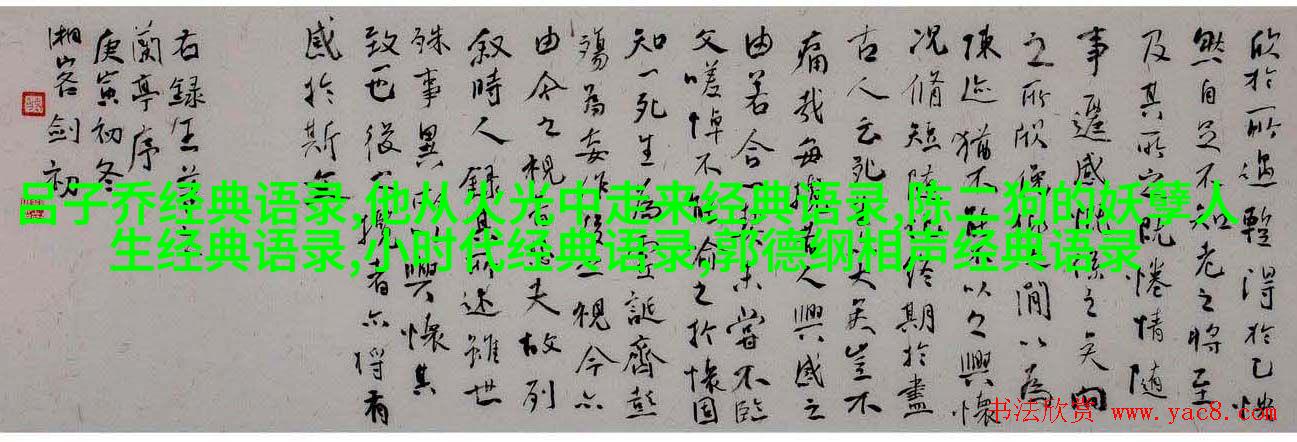 欣於所遇暫得於己快
然自足不知老之將至
及其所之既惓情隨
事遷感慨係之矣向
之所欣俛仰之間以為
陳迹猶不能不以之興懷
況脩短隨化終期於盡
古人云死生亦大矣豈不
痛哉每攬昔人興感之
由若合一契未嘗不臨
文嗟悼不能喻之於懷固
知一死生為虛誕齊彭
殤為妄作後之視今亦
由今之視昔悲夫故列
敘時人錄其所述雖世
殊事異所以興懷其
致一也後之攬者亦將有
感於斯文
右録王羲之
蘭亭序
庚寅初冬
劍初
吕子乔经典语录,他从火光中走来经典语录,陈二狗的妖孽人
生经典语录,小时代经典语录,郭德纲相声经典语录
书法欣赏 www.yac8.com